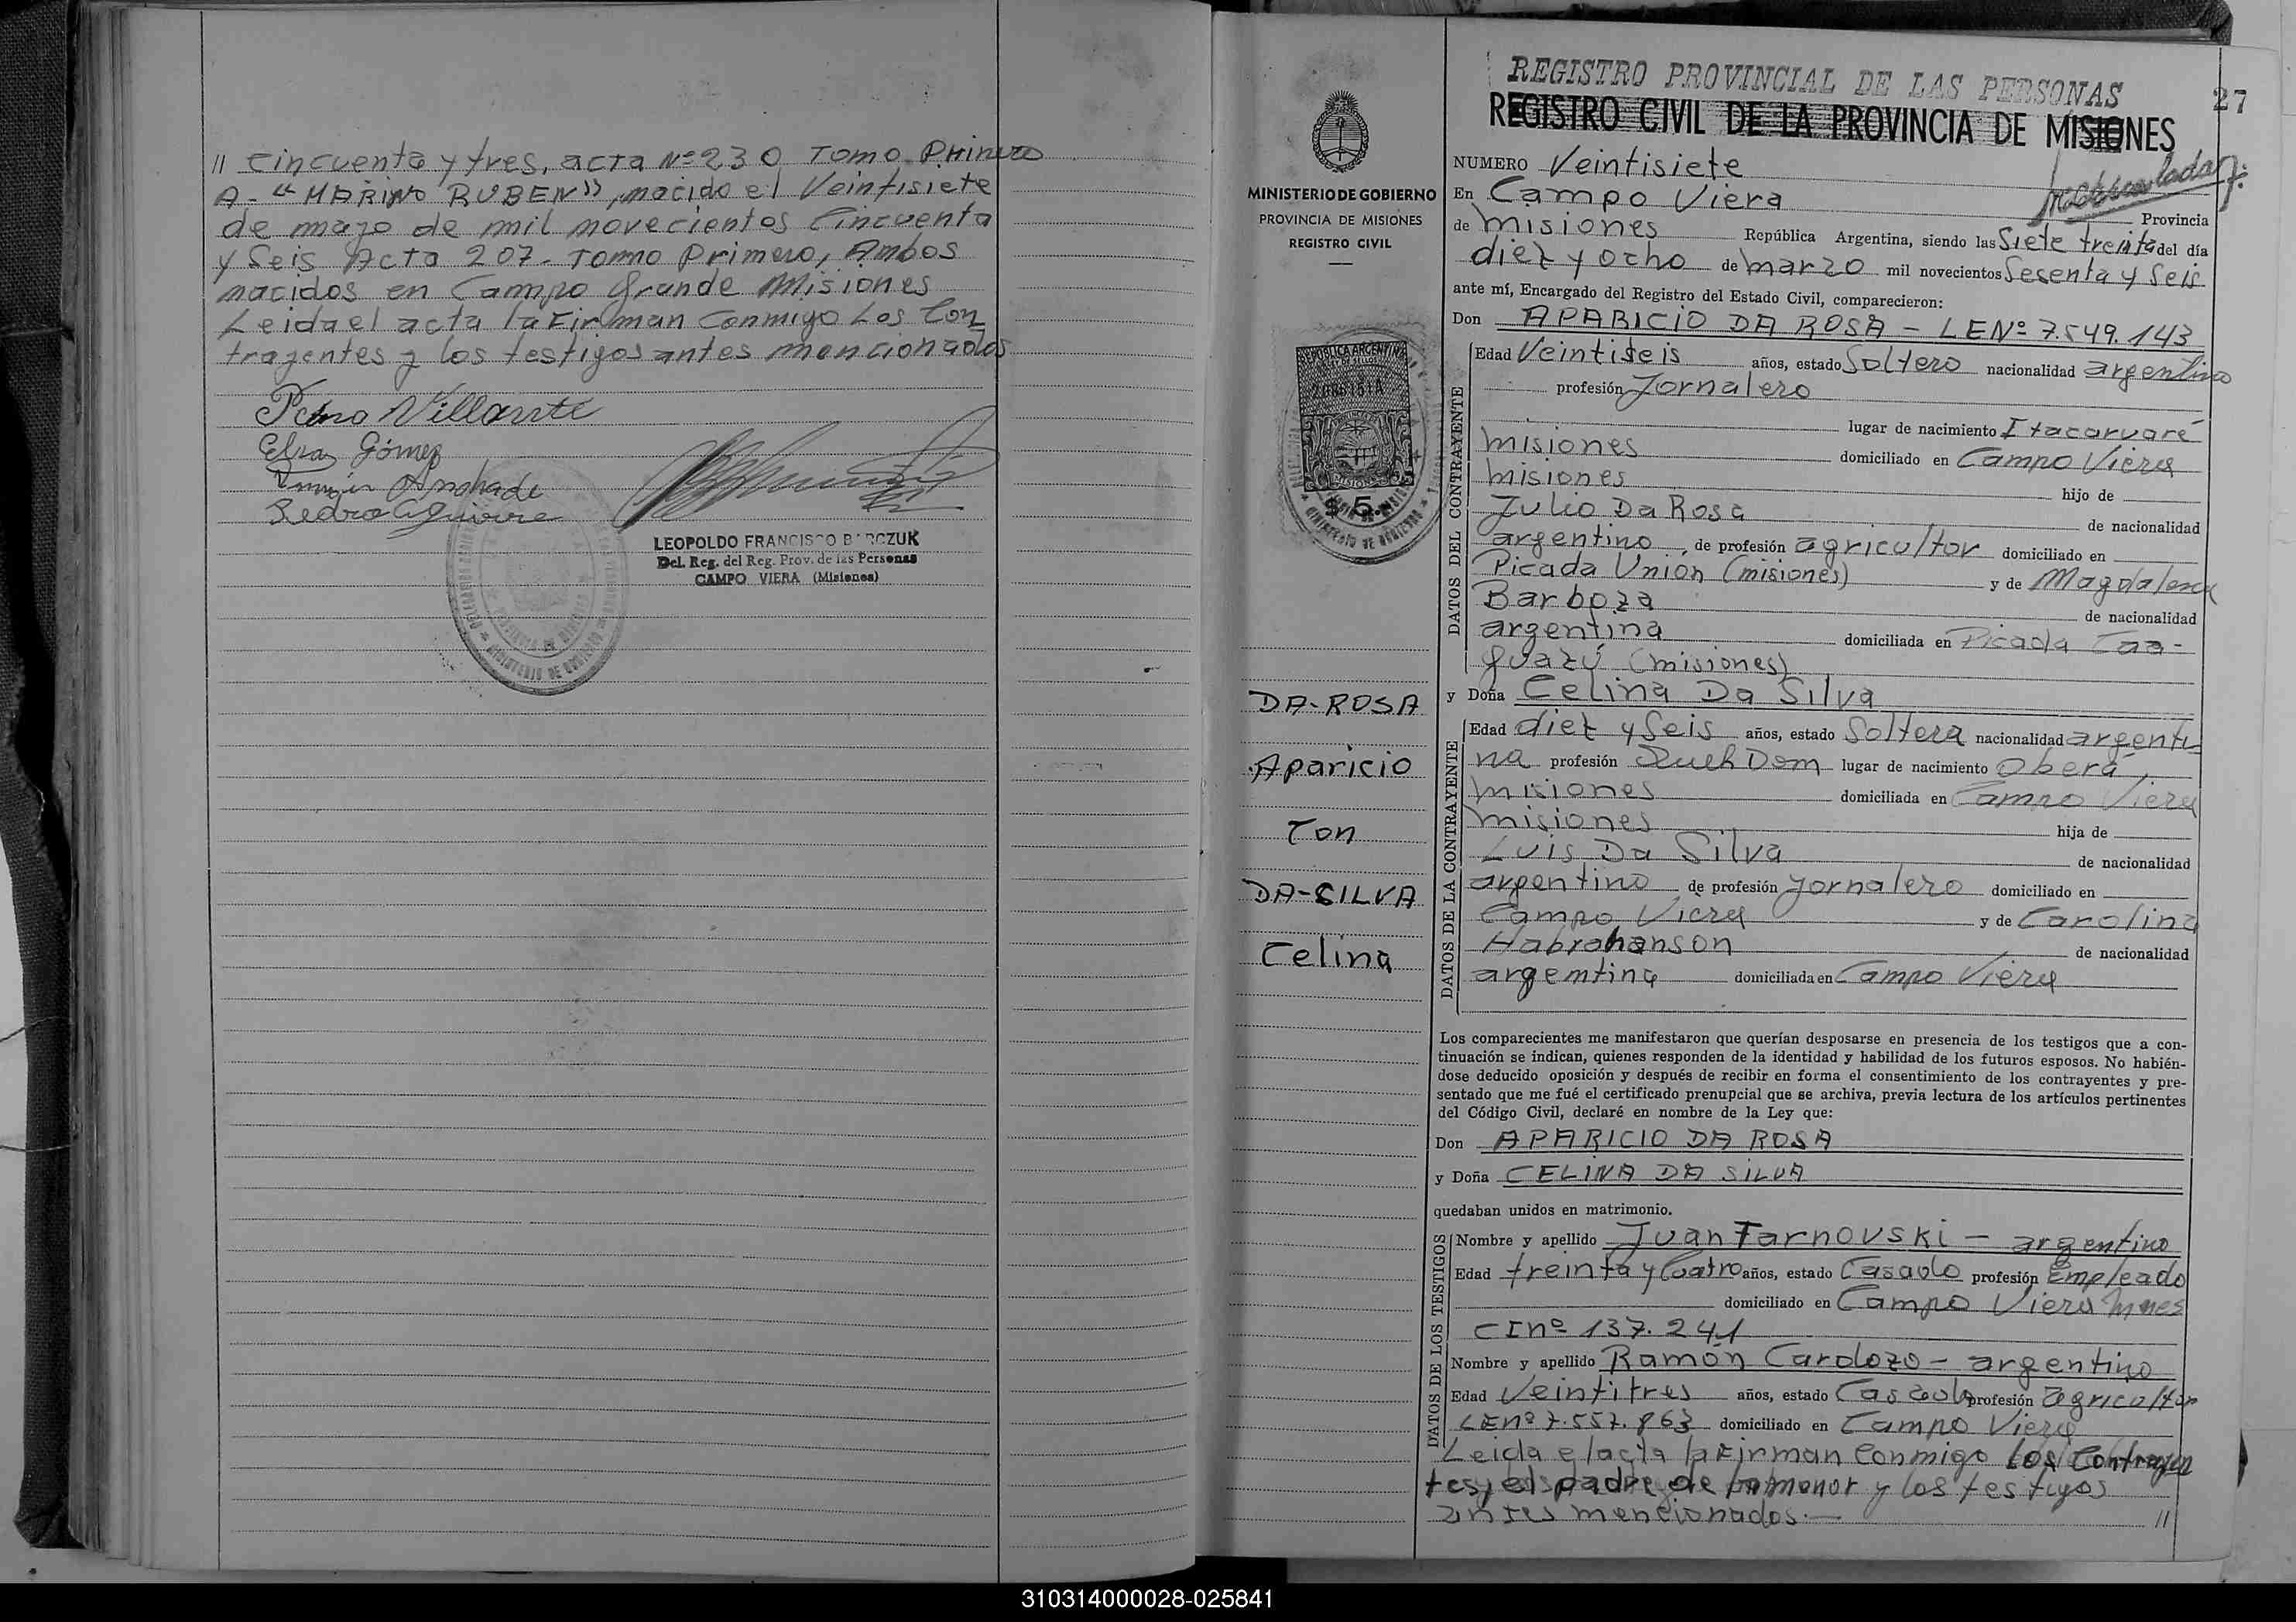 // cincuenta y tres, acta Nº 230 Tomo Primero
A- "MARINO RUBEN", nacido el Veintisiete
de mayo de mil novecientos Cincuenta
y Seis Acta 207- Tomo Primero, Ambos
nacidos en Campo Grande Misiones
Leida el acta la Firman Conmigo Los Con
trayentes y los testigos antes mencionados
Villante
Elsa Gómez
Andrade
Pedro Aguirre
LEOPOLDO FRANCISCO BARCZUK
Del. Reg. del Reg. Prov. de las Personas
CAMPO VIERA (Misiones)
REGISTRO PROVINCIAL DE LAS PERSONAS
REGISTRO CIVIL DE LA PROVINCIA DE MISIONES
27
MINISTERIO DE GOBIERNO
PROVINCIA DE MISIONES
REGISTRO CIVIL
REPUBLICA ARGENTINA
$ 5.-
DA-ROSA
Aparicio
Con
DA-SILVA
Celina
NUMERO Veintisiete
En Campo Viera Provincia
de Misiones República Argentina, siendo las Siete treinta del día
diez y ocho de marzo mil novecientos Sesenta y Seis
ante mí, Encargado del Registro del Estado Civil, comparecieron:
Don APARICIO DA ROSA - LE Nº 7.549.143
DATOS DEL CONTRAYENTE
Edad Veintiseis años, estado Soltero nacionalidad argentino
profesión Jornalero
lugar de nacimiento Itacaruaré
misiones domiciliado en Campo Viera
misiones hijo de
Julio Da Rosa de nacionalidad
argentino, de profesión agricultor domiciliado en
Picada Unión (misiones) y de Magdalena
Barboza de nacionalidad
argentina domiciliada en Picada Caa-
guazú (misiones)
y Doña Celina Da Silva
DATOS DE LA CONTRAYENTE
Edad diez y Seis años, estado Soltera nacionalidad argenti
na profesión Queh Dom lugar de nacimiento Oberá,
misiones domiciliada en Campo Viera
misiones hija de
Luis Da Silva de nacionalidad
argentino de profesión jornalero domiciliado en
Campo Viera y de Carolina
Habrahanson de nacionalidad
argentina domiciliada en Campo Viera
Los comparecientes me manifestaron que querían desposarse en presencia de los testigos que a con-
tinuación se indican, quienes responden de la identidad y habilidad de los futuros esposos. No habién-
dose deducido oposición y después de recibir en forma el consentimiento de los contrayentes y pre-
sentado que me fué el certificado prenupcial que se archiva, previa lectura de los artículos pertinentes
del Código Civil, declaré en nombre de la Ley que:
Don APARICIO DA ROSA
y Doña CELINA DA SILVA
quedaban unidos en matrimonio.
DATOS DE LOS TESTIGOS
Nombre y apellido Juan Tarnovski - argentino
Edad treinta y Cuatro años, estado Casado profesión Empleado
domiciliado en Campo Viera Mnes
CI nº 137.241
Nombre y apellido Ramón Cardozo - argentino
Edad Veintitres años, estado Casado profesión agricultor
LE nº 7.557.863 domiciliado en Campo Viera
Leida el acta la Firman Conmigo Los Contrayen
tes, el padre de la menor y los testigos
antes mencionados.- //
310314000028-025841